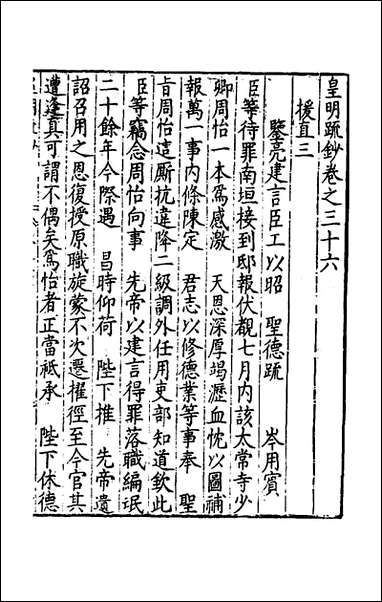 皇明疏鈔卷之三十六
援直三
鑒亮建言臣工以昭　聖德疏　岑用賓
臣等待罪南垣接到邸報伏覩七月內該太常寺少
卿周怡一本爲感激　天恩深厚竭瀝血忱以圖補
報萬一事內條陳定　君志以修德業等事奉　聖
㫖周怡這厮抗違降二級調外任用吏部知道欽此
臣等竊念周怡向事　先帝以建言得罪落職編珉
二十餘年今際遇　昌時仰荷　陛下推　先帝遺
詔召用之恩復授原職旋蒙不次遷擢徑至今官其
遭逢真可謂不偶矣爲怡者正當祗承　陛下休德